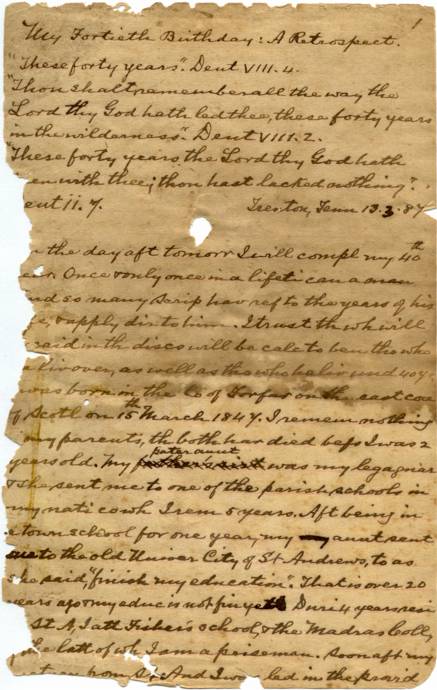 1
My Fortieth Birthday: A Retrospect.
"These forty years". Deut VIII. 4.
"Thou shalt remember all the way the
Lord thy God hath led thee, these forty years
in the wilderness". Deut VIII. 2.
"These forty years, the Lord thy God hath
en with thee; thou hast lacked nothing".
eut 11. 7.
Trenton, Tenn 13. 3. 87
n the day aft tomorr I will compl my 40th
ear. Once & only once in a lifeti can a man
nd so many Scrip hav ref to the years of his
fe, & apply dir to him. I trust th wh will
said in the discs will be calc to ben tho who
liv over, as well as tho who ha liv und 40 y
was born in the Co of Forfar on the east coa
of Scotl on 15th March 1847. I remem nothing
my parents, th both hav died befo I was 2
years old. My pater aunt was my lega guar
& she sent me to one of the parish schools in
my nati co wh I rem 5 years. Aft being in
town school for one year, my aunt sent
me to the old Univer City of St Andrews, to as
she said, "finish my education". That is over 20
years ago & my educ is not fin yet. Duri 4 years resi
St. A I att Fisher's school, & the Madras Coll,
the latt of wh I am a prizeman. Soon aft my
And I was led in the provid